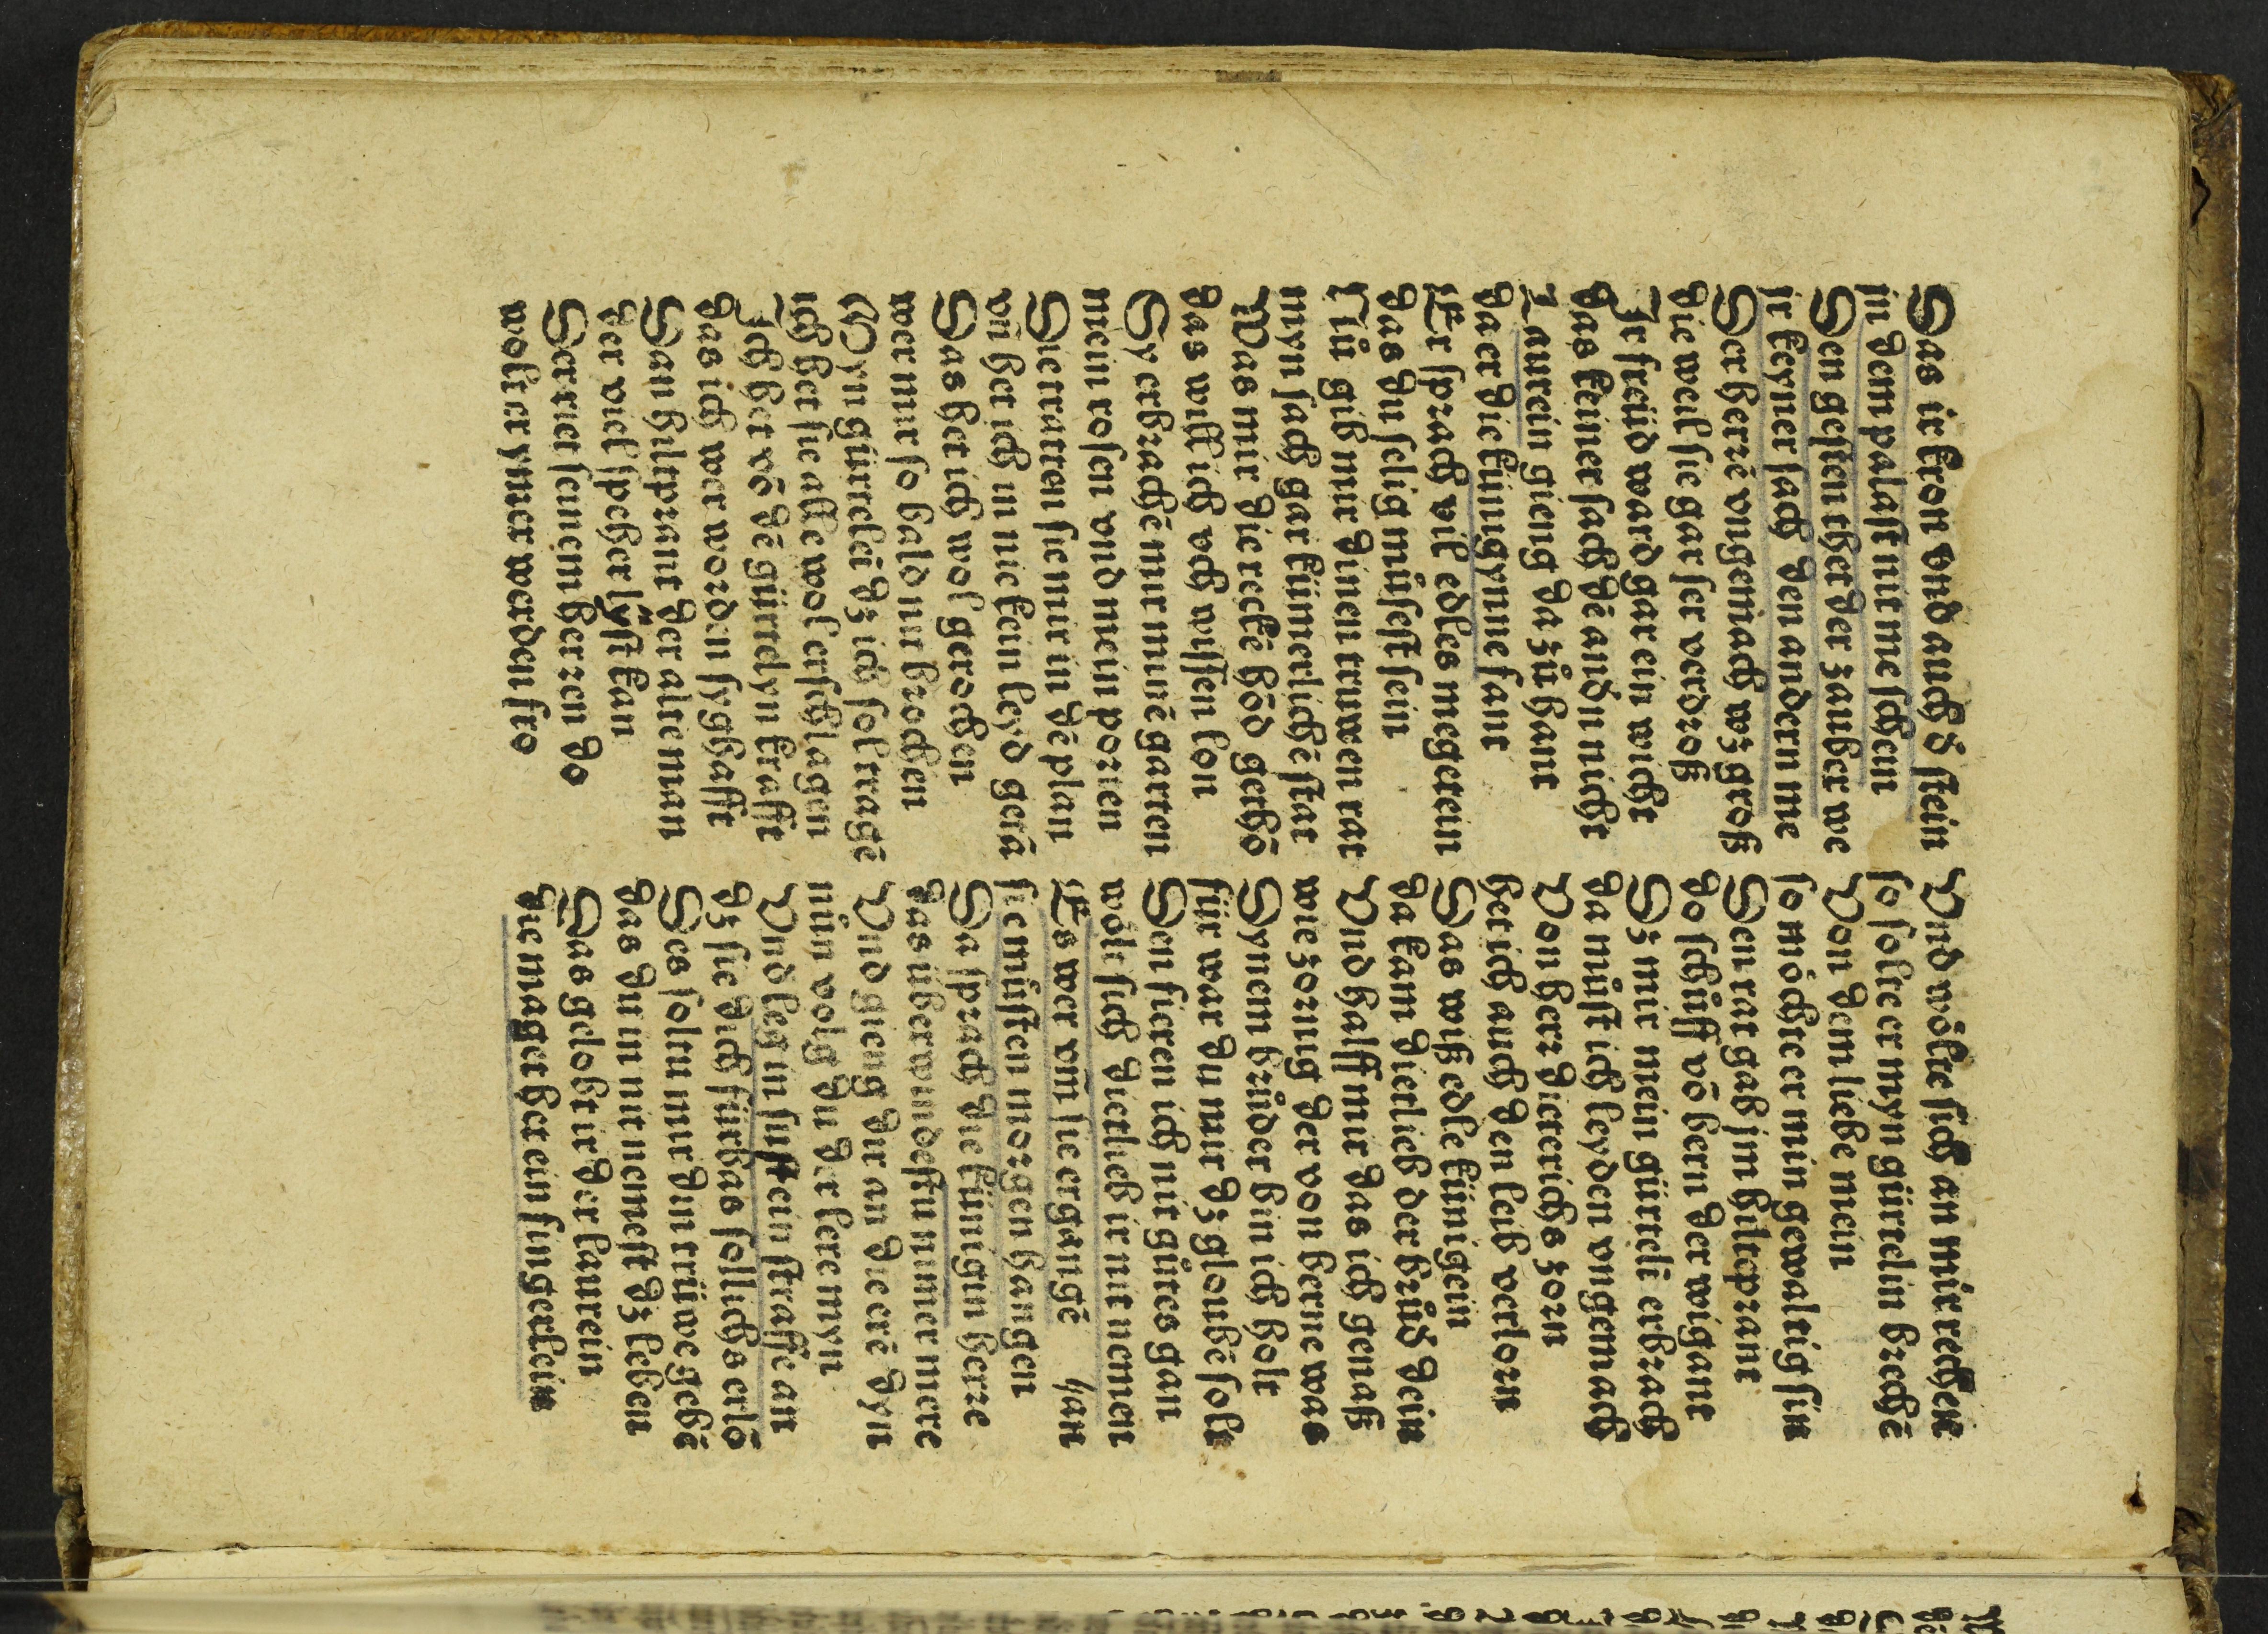 Das ir kron vnd auch d̕ stein
in dem palast nit me schein
Den gesten ther der zauber we
ir keyner sach den andern me
Der hertzē vngemach wz groß
die weil sie gar ser verdroß
Ir freüd ward gar ein wicht
das keiner sach dē andn̄ nicht
Laurein gieng da zů hant
da er die künigynne fant
Er sprach vil edles megetein
das du selig müsest sein
Nů gib mir dinen truwen rat
myn sach gar kümerlichē stat
Was mir die reckē hōd gethō
das will ich üch wissen lon
Sy erbrachē mir minē garten
mein rosen vnd mein porten
Die tratten sie mir in dē plan
vn̄ het ich in nie kein leyd getā
Das het ich wol gerochen
wer mir so bald nit brochen
Myn gürtelī dz ich solt tragē
ich het sie alle wol erschlagen
Ich het vō dē gürtelyn krafft
das ich wer worden syghafft
Dan hiltprant der alte man
der viel specher lüst kan
Der riet seinem herren do
wolt er ymer werden fro
Vnd wölte sich an mir rechen
so solte er myn gürtelin brechē
Von dem liebe mein
so möchte er min gewaltig sin
Den rat gab jm hilteprant
do schüff vō bern der wigant
Dz mir mein gürtelī erbrach
da müst ich leyden vngemach
Von herr dietterichs zorn
het ich auch den leib verlorn
Das wiß edle künigein
da kam dietlieb der brůd̕ dein
Vnd halff mir das ich genaß
wie zornig der von berne was
Dynem brůder bin ich holt
für war du mir dz gloubē solt
Den fieren ich nit gůtes gan
wölt sich dietlieb ir nit nemen
Es wer vm̄ sie ergangē han
sie müsten morgen hangen
Da sprach die künigin herre
das überwindestu nimer mere
Vnd gieng dir an die ere dyn
nün volg du der lere myn
Vnd leg in sust ein straffe an
dz sie dich fürbas sollichs erlō
Des soltu mir din trüwe gebē
das du in nit nemest dz leben
Das gelobt ir der laurein
die maget het ein fingerlein